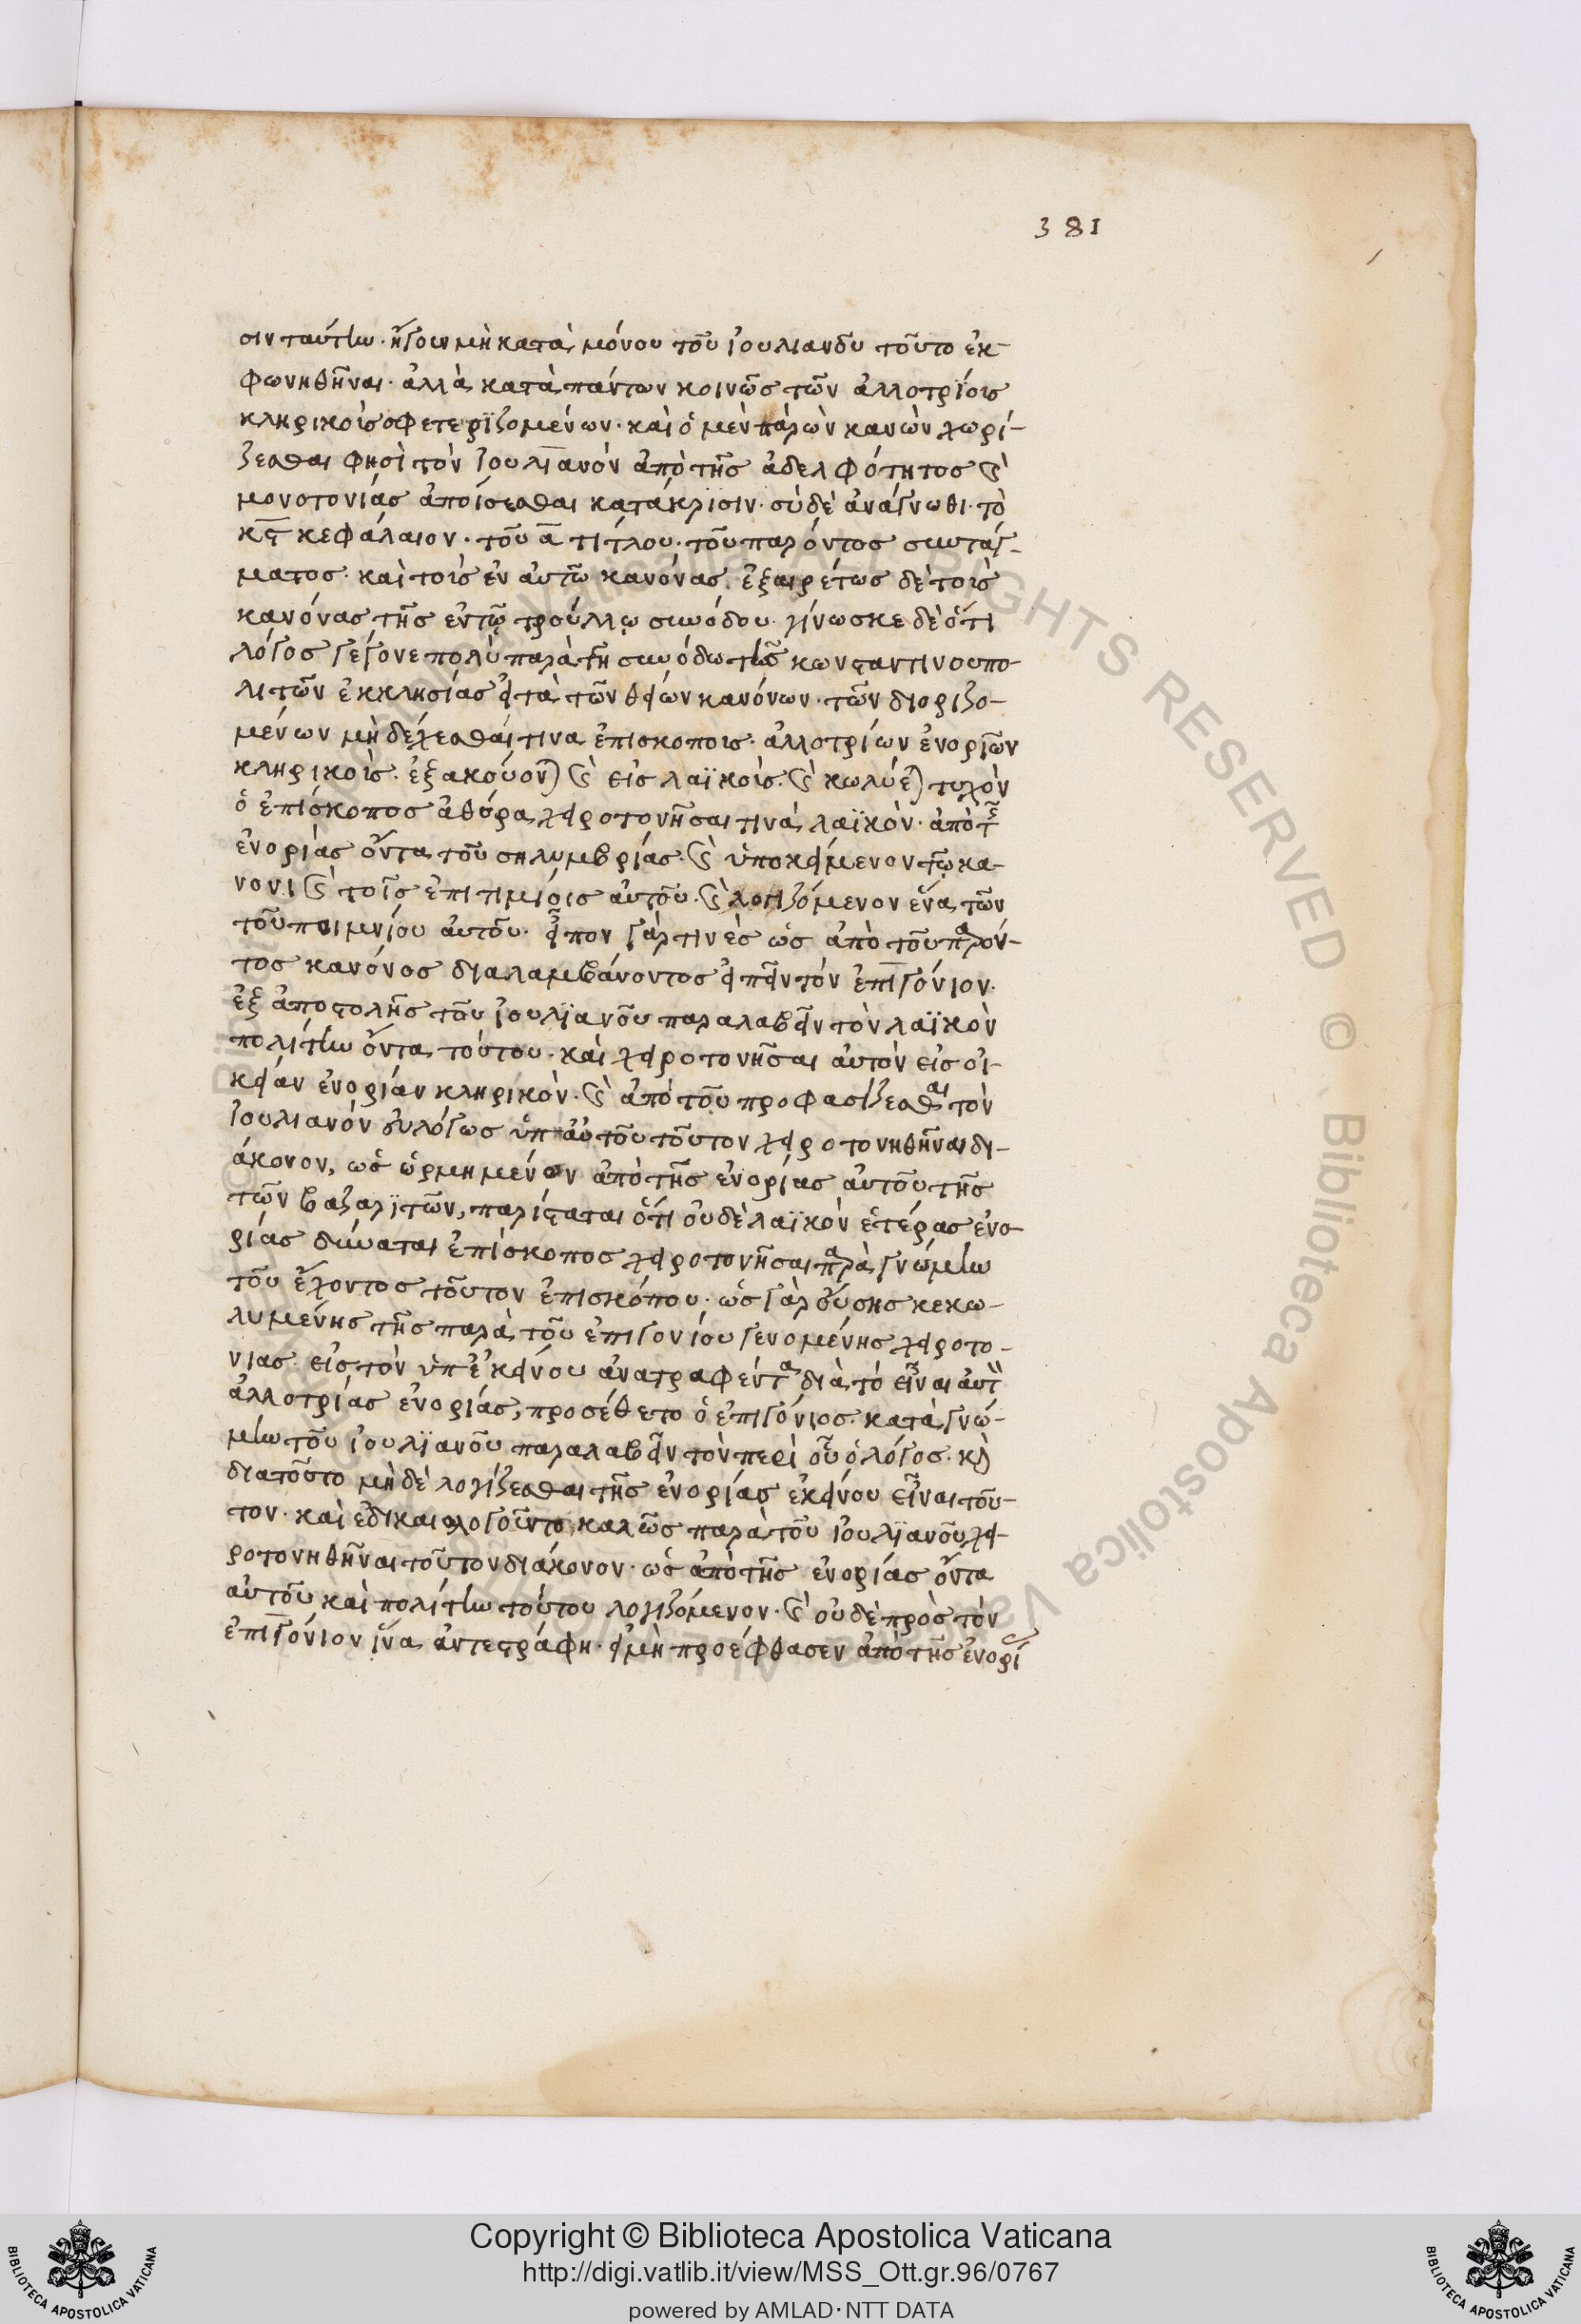 381
σιν ταύτην· ἤγουν μὴ κατὰ μόνου τοῦ ἰουλιανοῦ τοῦτο ἐκ-
φωνηθῆναι· ἀλλὰ κατὰ πάντων κοινῶς τῶν ἀλλοτρίοις
κληρικοὺς σφετεριζομένων· καὶ ὁ μὲν παρὼν κανὼν χωρί-
ζεσθαι φησὶ τὸν ἰουλϊανὸν ἀπὸ τῆς ἀδελφότητος καὶ
μονοτονίας ἀποίσεσθαι κατάκρισιν· σὺ δὲ ἀνάγνωθι· τὸ
κϛ κεφάλαιον· τοῦ α τίτλου· τοῦ παρόντος συντάγ-
ματος· καὶ τοὺς ἐν αὐτῶ κανόνας. ἐξαιρέτως δὲ τοὺς
κανόνας τῆς ἐν τῷ τρούλλῳ συνόδου· γίνωσκε δὲ ὅτι
λόγος γέγονε πολὺ παρὰ τῆ συνόδω τῆς κωνσταντινουπο-
λιτῶν ἐκκλησίας εἰ τὰ τῶν θείων κανόνων· τῶν διοριζο-
μένων μὴ δέχεσθαί τινα ἐπισκοποις· ἀλλοτρίων ἐνοριῶν
κληρικοὺς· ἐξακούον) καὶ εἰς λαϊκοὺς· καὶ κωλύε) τυχὸν
ὁ ἐπίσκοπος ἀθύρα χειροτονῆσαι τινὰ λαϊκὸν· ἀπὸ τῆς
ἐνορίας ὄντα τοῦ σηλυμβρίας· καὶ ὑποκείμενον τῶ κα-
νονι καὶ τοῖς ἐπιτιμίοις αὐτοῦ· καὶ λογιζόμενον ἕνα τῶν
τοῦ ποιμνίου αὐτοῦ· εἶπον γάρ τινὲς ὡς ἀπὸ τοῦ παρόν-
τος κανόνος διαλαμβάνοντος εἰπεῖν τὸν ἐπϊγόνιον·
ἐξ ἀποστολῆς τοῦ ἰουλϊανοῦ παραλαβεῖν τὸν λαϊκὸν
πολίτην ὄντα τούτου· καὶ χειροτονῆσαι αὐτὸν εἰς οἰ-
κείαν ἐνορίαν κληρικὸν· καὶ ἀπὸ τοῦ προφασίζεσθαι τὸν
ἰουλιανὸν εὐλόγως ὑπ αὐτοῦ τοῦτον χειροτονηθῆναι δι-
άκονον, ὡς ὡρμημένον ἀπὸ τῆς ἐνορίας αὐτοῦ τῆς
τῶν βαζαρϊτῶν, παρίσταται ὅτι οὐδὲ λαϊκὸν ἑτέρας ἐνο-
ρίας δύναται ἐπίσκοπος χειροτονῆσαι παρὰ γνώμην
τοῦ ἔχοντος τοῦτον ἐπισκόπου· ὡς γὰρ οὔσης κεκω-
λυμένης τῆς παρὰ τοῦ ἐπιγονίου γενομένης χειροτο-
νιας· εἰς τὸν ὑπ ἐκείνου ἀνατραφέντα διὰ τὸ εἶναι αὐτὸν
ἀλλοτρίας ἐνορίας, προσέθετο ὁ ἐπιγόνιος· κατὰ γνώ-
μην τοῦ ἰουλϊανοῦ παραλαβεῖν τὸν περὶ οὗ ὁ λόγος· καὶ
διατοῦτο μὴ δὲ λογίζεσθαι τῆς ἐνορίας ἐκείνου εἶναι τοῦ-
τον· καὶ ἐδικαιολογοῦντο καλῶς παρὰ τοῦ ἰουλϊανοῦ χει-
ροτονηθῆναι τοῦτον διάκονον· ὡς ἀπὸ τῆς ἐνορίας ὄντα
αὐτοῦ καὶ πολίτην τούτου λογιζόμενον· καὶ οὐδὲ πρὸς τὸν
ἐπϊγόνιον ἵνα ἀντεστράφη· εἰ μὴ προέφθασεν ἀπὸ τῆς ἐνορί
Copyright © Biblioteca Apostolica Vaticana
http://digi.vatlib.it/view/MSS_Ott.gr.96/0767
powered by AMLAD·NTT DATA
BIBLIOTECA APOSTOLICA VATICANA
BIBLIOTECA APOSTOLICA VATICANA